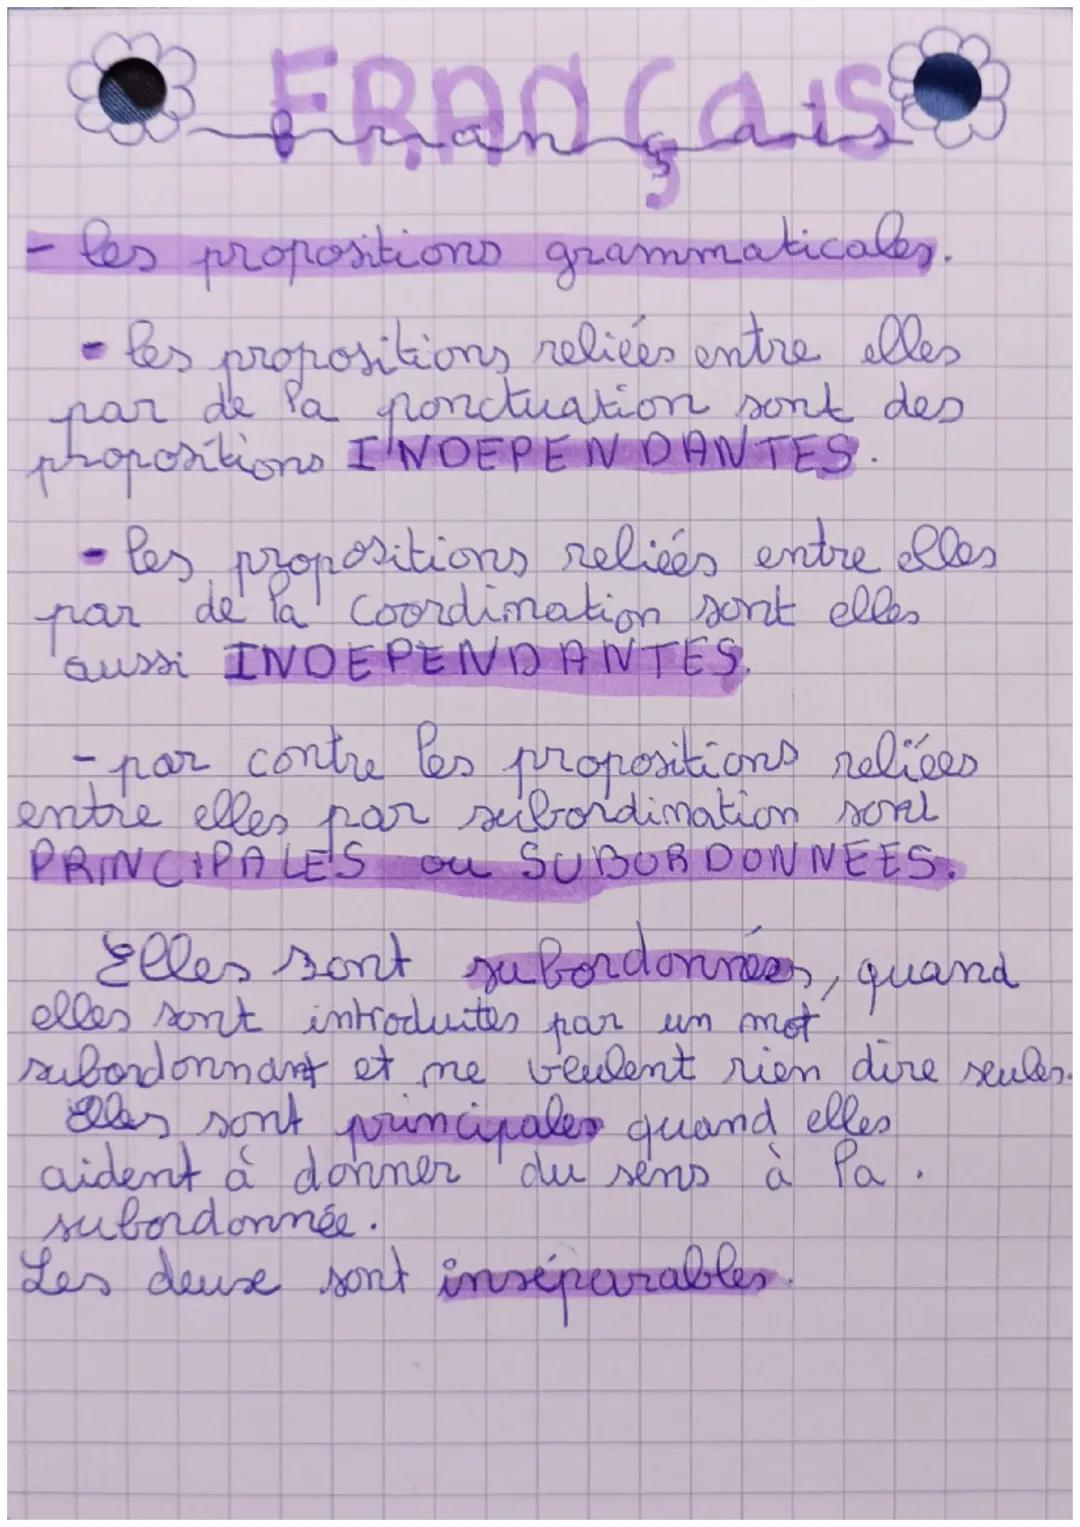 FRANÇais
français
- les propositions grammaticales.
- les propositions reliées entre elles
par de la ponctuation sont des
propositions INDEPENDANTES.
- les propositions reliées entre elles
par de la coordination sont elles
aussi INDEPENDANTES.
- par contre les propositions reliées
entre elles par subordination sont
PRINCIPALES ou SUBORDONNEES.
Elles sont subordonnées, quand
elles sont introduites par un mot
subordonnant et ne veulent rien dire seules.
Elles sont principales quand elles
aident à donner du sens à la.
subordonnée.
Les deux sont inséparables.